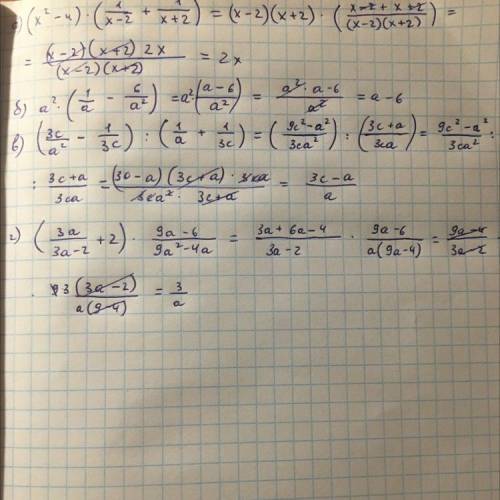 а) (x² - 4) · (1/(x-2) + 1/(x+2)) = (x-2)(x+2) · ((x-2 + x+2)/((x-2)(x+2))) =
= ((x-2)(x+2) 2x)/((x-2)(x+2)) = 2x
б) a² · (1/a - 6/a²) = a² · ((a-6)/a²) = (a² · a-6)/a² = a-6
в) (3c/a² - 1/3c) : (1/a + 1/3c) = ((9c²-a²)/3ca²) : ((3c+a)/3ca) = (9c²-a²)/3ca² :
: (3c+a)/3ca = ((30-a)(3c+a) · 3ca)/(3ca² · 3c+a) = (3c-a)/a
г) (3a/(3a-2) + 2) · (9a-6)/(9a²-4a) = (3a+6a-4)/(3a-2) · (9a-6)/(a(9a-4)) = (9a-4)/(3a-2) ·
· 3(3a-2)/(a(9-4)) = 3/a